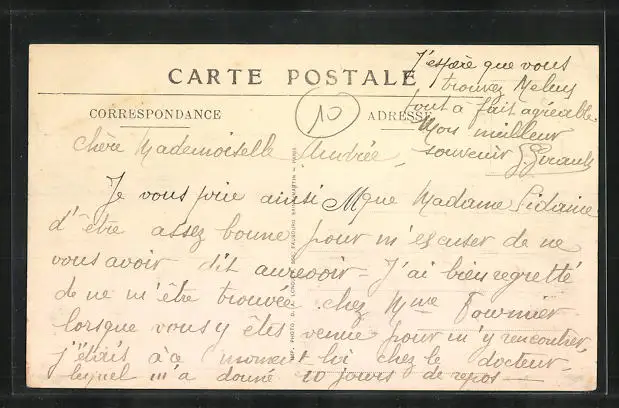 J'espère que vous
trouvez Melun
tout à fait agréable.
Mon meilleur
souvenir G. Girault
CARTE POSTALE
CORRESPONDANCE
10
ADRESSE
Chère Mademoiselle Andrée,
Je vous prie ainsi que Madame
d'être assez bonne pour m'escuser de ne
vous avoir dit aurevoir - J'ai bien regretté
de ne m'être trouvée chez Mme Fournier
lorsque vous y êtes venue pour m'y rencontrer,
j'étais à ce moment là chez le docteur -
lequel m'a donné 10 jours de repos -
IMP. PHOTO D. A. LONGUET 250 FAUBOURG ST MARTIN - PARIS